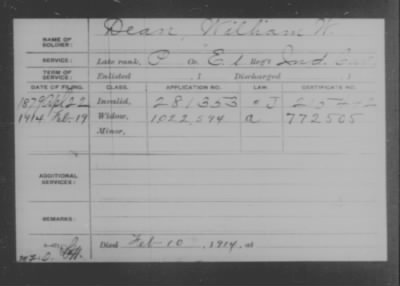 NAME OF SOLDIER: Dean, William W.
SERVICE: Late rank, P Co. E 1 Reg't Ind. Cav.
TERM OF SERVICE: Enlisted , 1 Discharged , 1
DATE OF FILING. CLASS. APPLICATION NO. LAW. CERTIFICATE NO.
1879 Apl 22 Invalid, 281353
1914 Feb-19 Widow, 1022,594 a 772505
Minor,
ADDITIONAL SERVICES:
REMARKS:
Died Feb-10, 1914, at